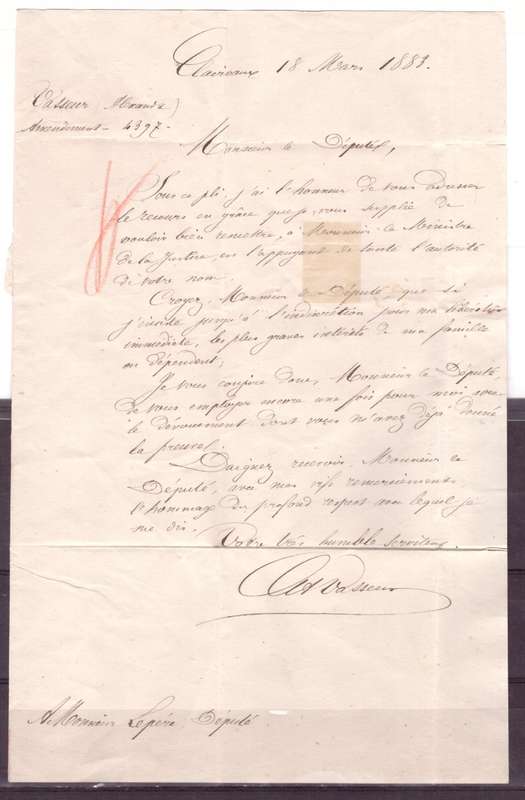 Clairvaux 18 Mars 1883.
Vasseur
4397.
Monsieur le Député,
Sous ce pli j'ai l'honneur de vous adresser
le recours en grâce que je vous supplie de
vouloir bien remettre, à Monsieur le Ministre
de la Justice, en l'appuyant de toute l'autorité
de votre nom.
Croyez, Monsieur le Député, que si
j'insiste jusqu'à l'indiscrétion pour ma libération
immédiate, les plus graves intérêts de ma famille
en dépendent;
Je vous conjure donc, Monsieur le Député,
de vous employer encore une fois pour moi avec
le dévouement dont vous m'avez déjà donné
la preuve.
Daignez recevoir, Monsieur le
Député, avec mes vifs remerciements
l'hommage du profond respect avec lequel je
me dis.
Votre très humble serviteur.
Vasseur
A Monsieur Lepère, Député